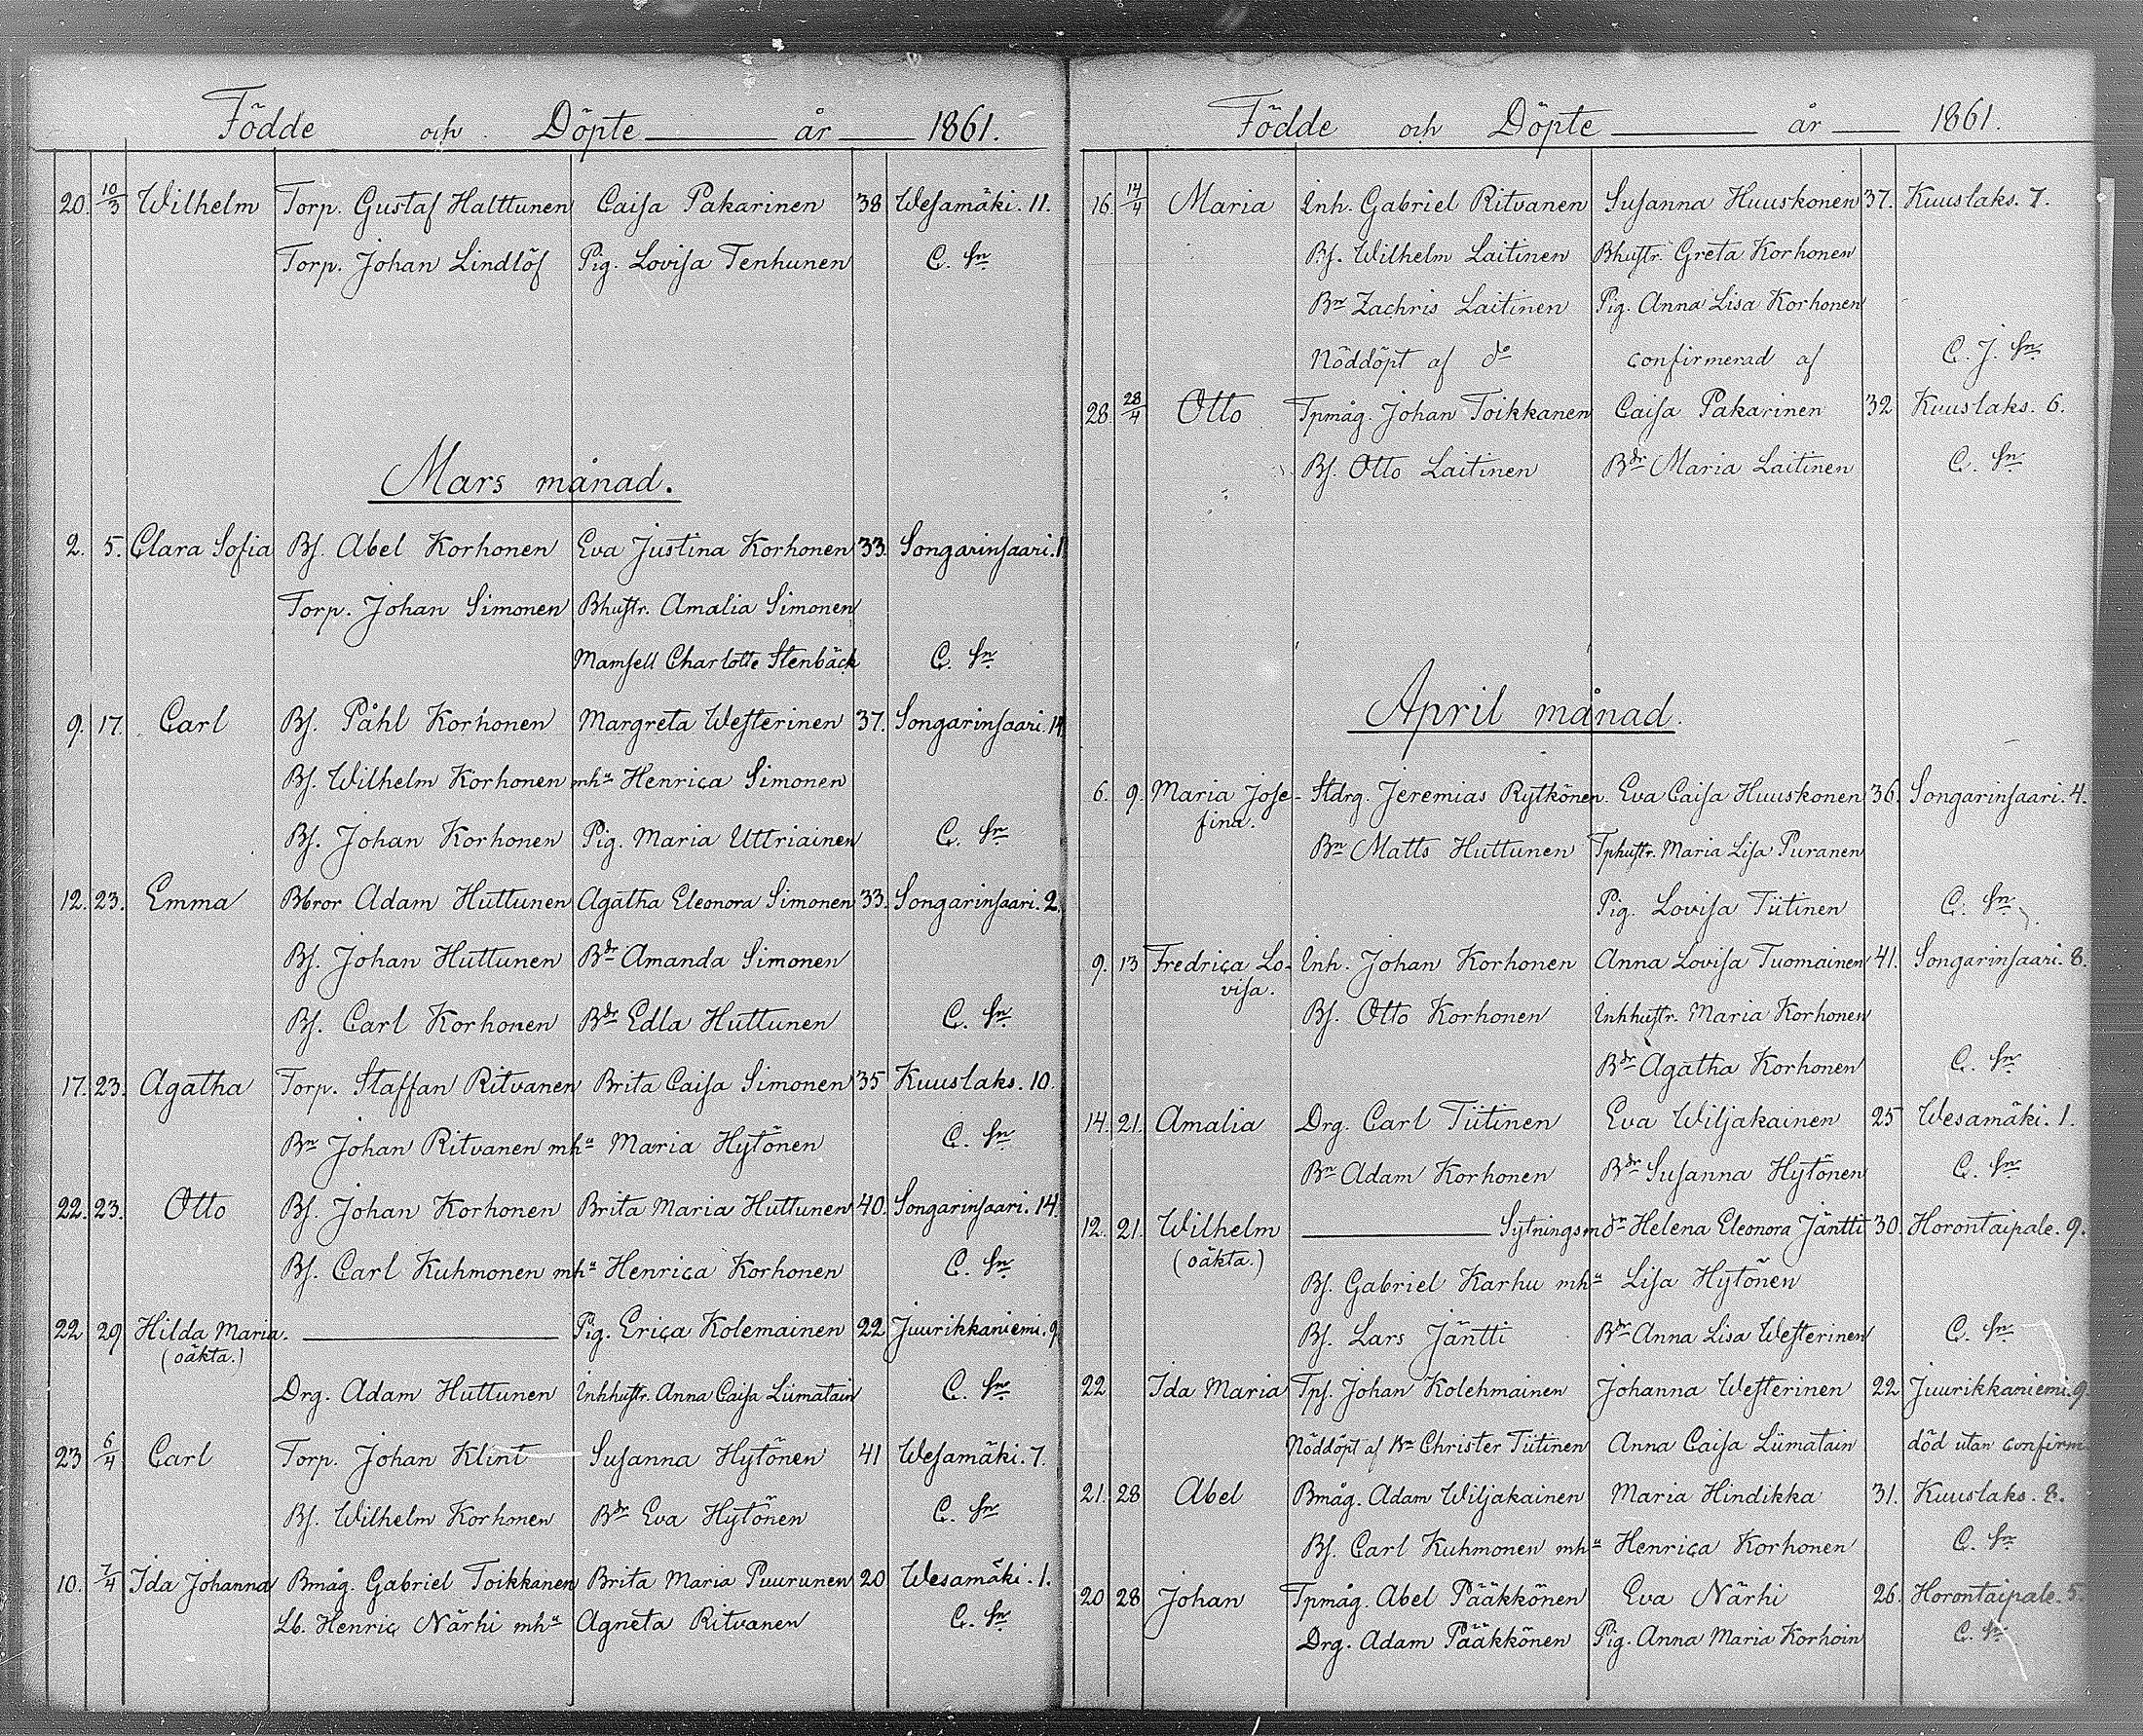 Födde och Döpte år 1861.
20. 10/3 Wilhelm Torp. Gustaf Halttunen Caisa Pakarinen 38 Wesamäki. 11.
Torp. Johan Lindlöf Pig. Lovisa Tenhunen C. Sn
Mars månad.
2. 5. Clara Sofia Bs. Abel Korhonen Eva Justina Korhonen 33. Songarinsaari. 11
Torp. Johan Simonen Bhustr. Amalia Simonen
Mamsell Charlotte Stenbäck C. Sn
9. 17. Carl Bs. Påhl Korhonen Margreta Westerinen 37. Songarinsaari. 14
Bs. Wilhelm Korhonen mhu Henrica Simonen
Bs. Johan Korhonen Pig. Maria Uttriainen C. Sn
12. 23. Emma Bbror Adam Huttunen Agatha Eleonora Simonen 33. Songarinsaari. 2.
Bs. Johan Huttunen Bdr Amanda Simonen
Bs. Carl Korhonen Bdr Edla Huttunen C. Sn
17. 23. Agatha Torp. Staffan Ritvanen Brita Caisa Simonen 35 Kuuslaks. 10.
Bn Johan Ritvanen mhu Maria Hytönen C. Sn
22. 23. Otto Bs. Johan Korhonen Brita Maria Huttunen 40. Songarinsaari. 14.
Bs. Carl Kuhmonen mhu Henrica Korhonen C. Sn
22 29 Hilda Maria. Pig. Erica Kolemainen 22 Juurikkaniemi. 9
(oäkta.)
Drg. Adam Huttunen Inhhustr. Anna Caisa Liimatain C. Sn
23 6/4 Carl Torp. Johan Klint Susanna Hytönen 41 Wesamäki. 7.
Bs. Wilhelm Korhonen Bdr Eva Hytönen C. Sn
10. 7/4 Ida Johanna Bmåg. Gabriel Toikkanen Brita Maria Puurunen 20 Wesamäki. 1.
Lb. Henric Närhi mhu Agneta Ritvanen C. Sn
Födde och Döpte år 1861.
16. 14/4 Maria Inh. Gabriel Ritvanen Susanna Huuskonen 37. Kuuslaks. 7.
Bs. Wilhelm Laitinen Bhustr. Greta Korhonen
Bn Zachris Laitinen Pig. Anna Lisa Korhonen
Nöddöpt af do confirmerad af C. J. Sn
28. 28/4 Otto Tpmåg. Johan Toikkanen Caisa Pakarinen 32 Kuuslaks. 6.
Bs. Otto Laitinen Bdr Maria Laitinen C. Sn
April månad.
6. 9. Maria Jose- Stdrg. Jeremias Rytkönen. Eva Caisa Huuskonen 36. Songarinsaari. 4.
fina.
Bn Matts Huttunen Tphustr. Maria Lisa Puranen
Pig. Lovisa Tiitinen C. Sn
9. 13 Fredrica Lo- Inh. Johan Korhonen Anna Lovisa Tuomainen 41. Songarinsaari. 8.
visa.
Bs. Otto Korhonen Inhhustr. Maria Korhonen
Bdr Agatha Korhonen C. Sn
14. 21. Amalia Drg. Carl Tiitinen Eva Wiljakainen 25 Wesamäki. 1.
Bn Adam Korhonen Bdr Susanna Hytönen C. Sn
12. 21. Wilhelm Sytningsm dr Helena Eleonora Jäntti 30. Horontaipale. 9.
(oäkta.)
Bs. Gabriel Karhu mhu Lisa Hytönen
Bs. Lars Jäntti Bdr Anna Lisa Westerinen C. Sn
22 Ida Maria Tps. Johan Kolehmainen Johanna Westerinen 22. Juurikkaniemi. 9.
Nöddöpt af Bn Christer Tiitinen Anna Caisa Liimatain död utan confirm
21. 28 Abel Bmåg. Adam Wiljakainen Maria Hindikka 31. Kuuslaks. 8.
Bs. Carl Kuhmonen mhu Henrica Korhonen C. Sn
20 28 Johan Tpmåg. Abel Pääkkönen Eva Närhi 26. Horontaipale. 5.
Drg. Adam Pääkkönen Pig. Anna Maria Korhoin C. Sn